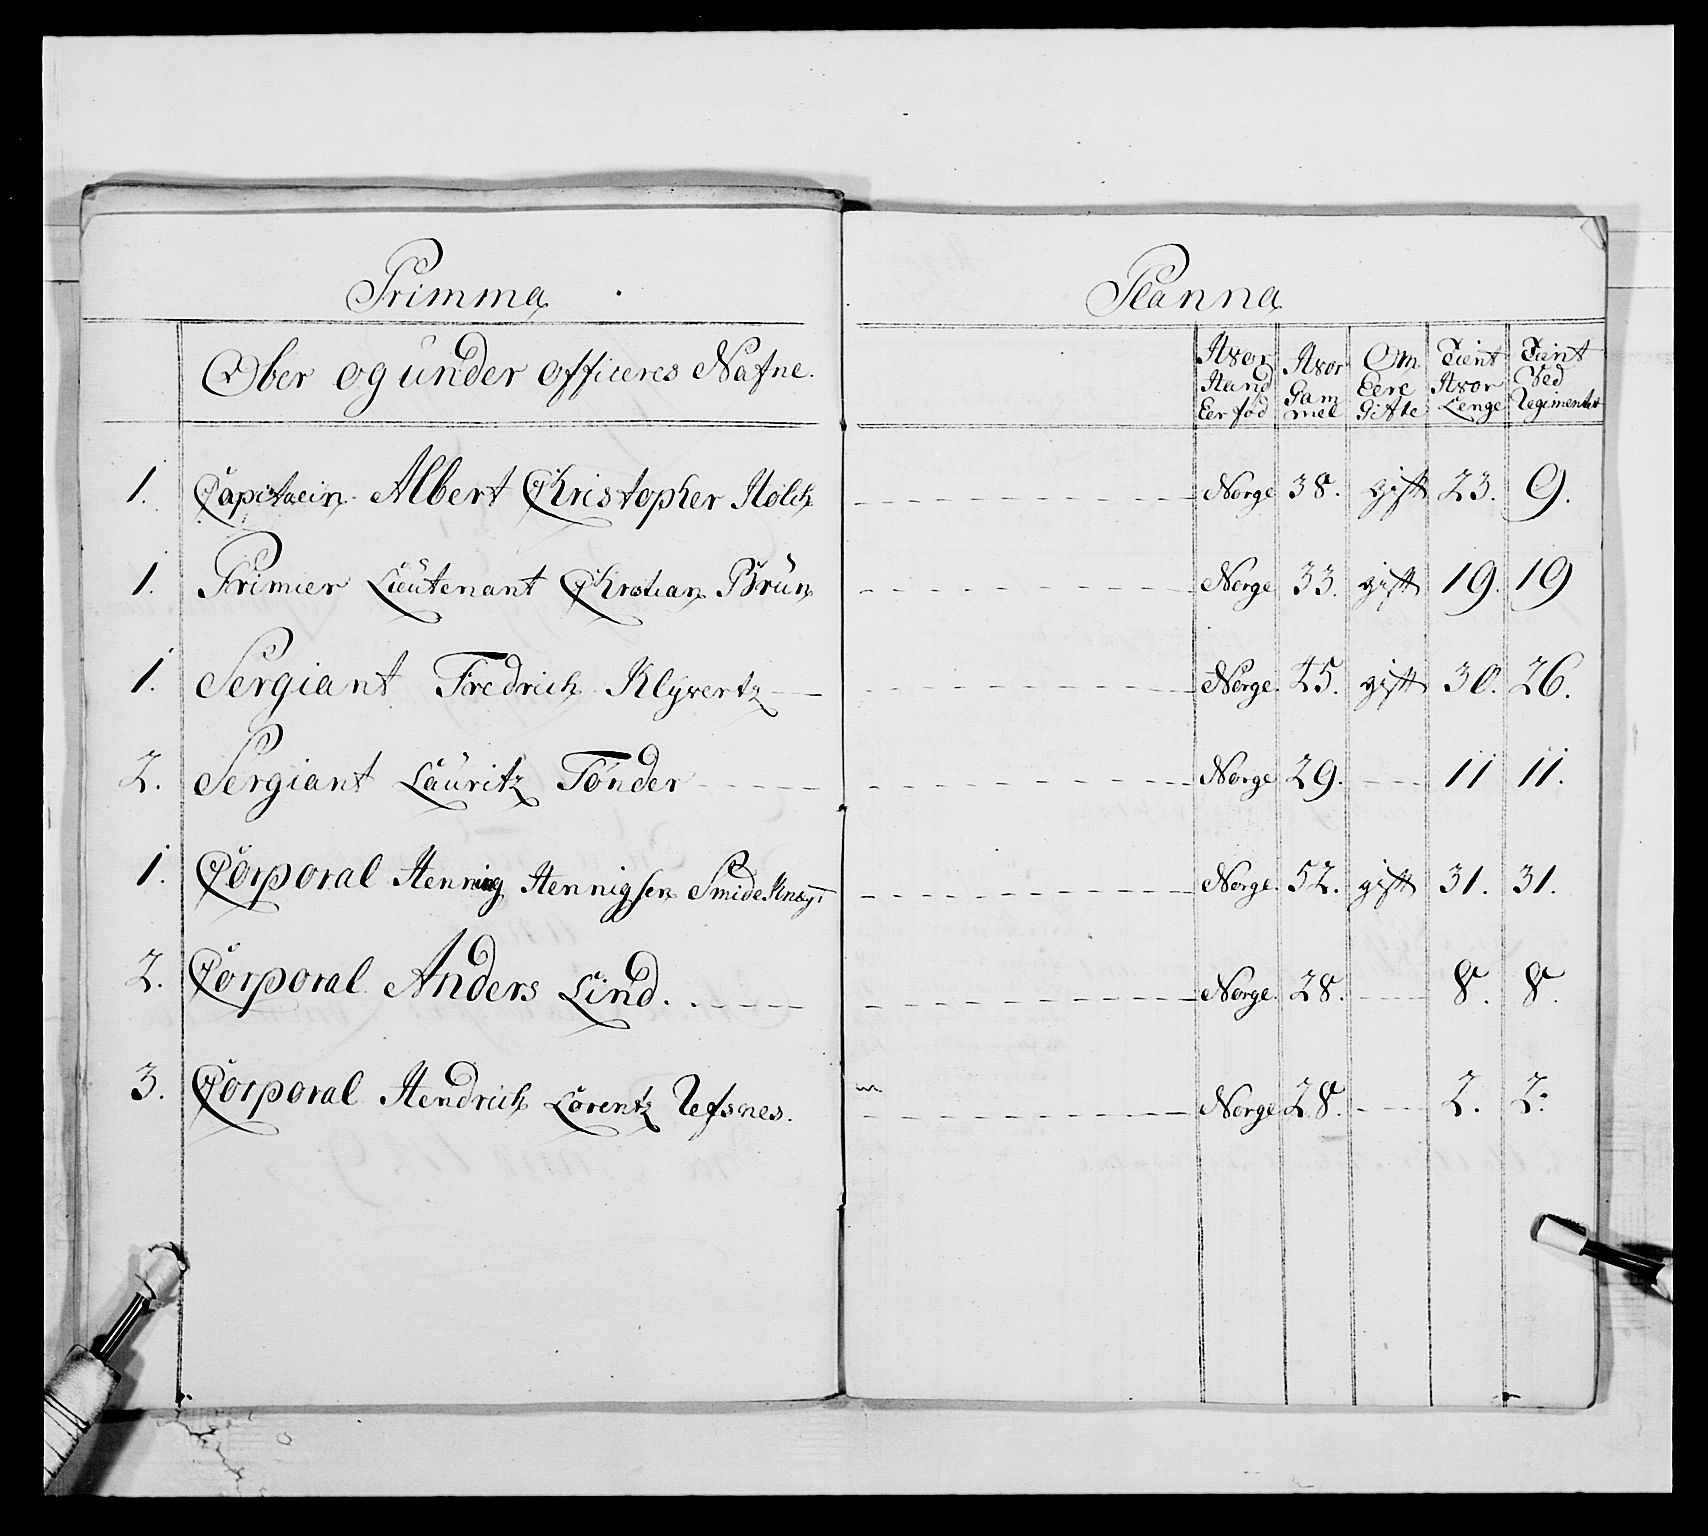 Primma Planna
Ober og under officeres Nafne.
Hvor Hand Eer fød
Hvor Gam mel
Om Eere Gifte
Tient Hvor Lenge
Tient Ved Regimentet
1. Capitaein Albert Christopher Holck Norge 38. gift 23. 9.
1. Primier Lieutenant Christian Brün Norge 33. gift 19. 19
1. Sergiant Fredrich Klÿvertz Norge. 45. gift 30. 26.
2. Sergiant Lauritz Tønder Norge 29. 11 11.
1. Corporal Henning Hennigsen Norge. 52. gift 31. 31.
2. Corporal Anders Lind. Norge. 28. 8. 8.
3. Corporal Hendrich Lorentz Refsnes. Norge 28. 2. 2.